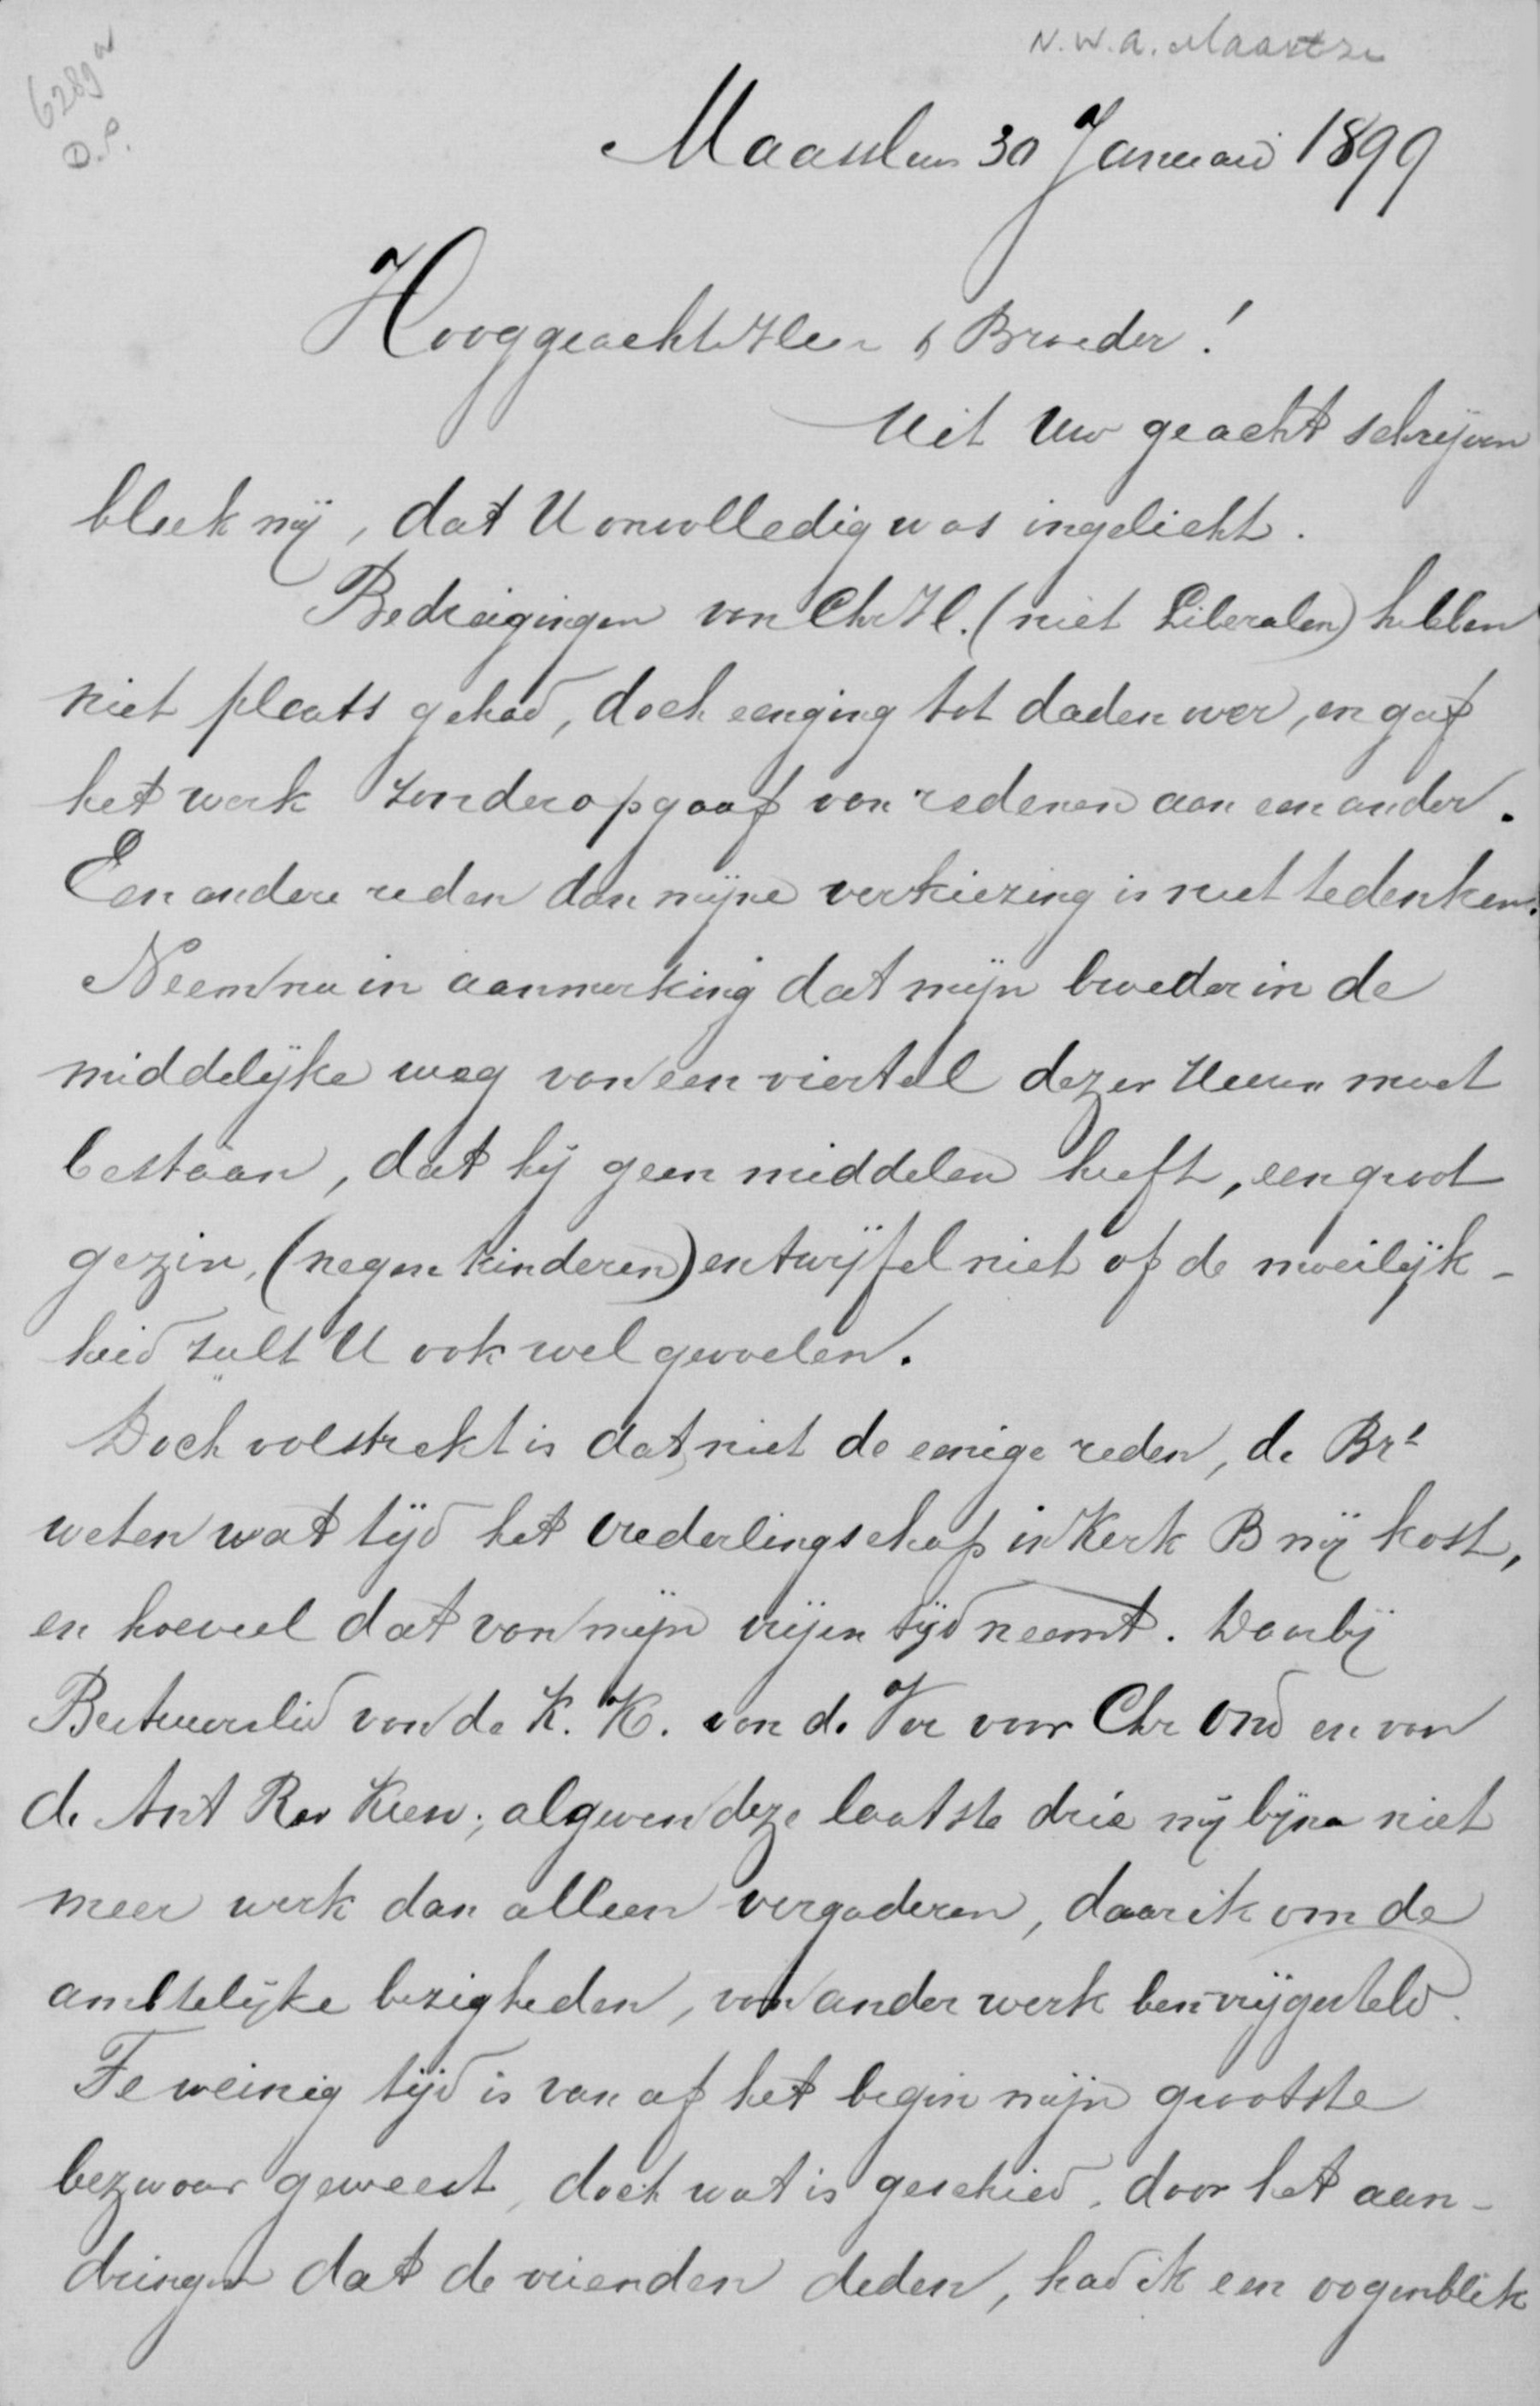 N.W.A. Maartze
6289a
D.P.
Maassluis 30 Januari 1899
Hooggeacht Heer & Broeder!
Uit Uw geacht schrijven
bleek mij, dat U onvolledig was ingelicht.
Bedreigingen van Chr H. (niet Liberalen) hebben
niet plaats gehad, doch een ging tot daden over, en gaf
het werk zonder opgaaf van redenen aan een ander.
Een andere reden dan mijne verkiezing is niet te denken.
Neem nu in aanmerking dat mijn broeder in de
middelijke weg van een viertal dezer Heeren moet
bestaan, dat hij geen middelen heeft, een groot
gezin, (negen kinderen) en twijfel niet of de moeilijk-
heid zult U ook wel gevoelen.
Doch volstrekt is dat niet de eenige reden, de Brs
weten wat tijd het ouderlingschap in Kerk B mij kost,
en hoeveel dat van mijn vrijen tijd neemt. Daarbij
Bestuurslid van de K. K. van de Ver voor Chr Ond en van
de Ant Rev Kiesv; al geven deze laatste drie mij bijna niet
meer werk dan alleen vergaderen, daar ik om de
ambtelijke bezigheden, van ander werk ben vrijgesteld.
Te weinig tijd is van af het begin mijn grootste
bezwaar geweest, doch wat is geschied, door het aan-
dringen dat de vrienden deden, had ik een oogenblik